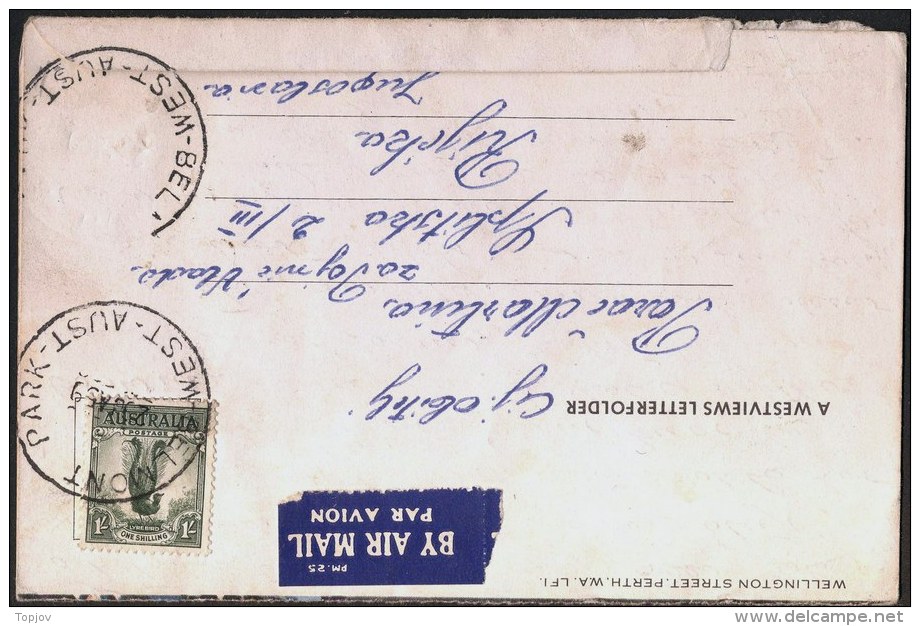 WELLINGTON STREET.PERTH.WA. LF1.
PM.25
BY AIR MAIL
PAR AVION
A WESTVIEWS LETTERFOLDER
Cij. obitelj
Parać Martina
za
Splitska 2/III
Rijeka
Jugoslavia
AUSTRALIA
POSTAGE
1/- 1/-
LYREBIRD
ONE SHILLING
ELMONT PARK - WEST-AUST-
W-BEL
WEST-AUST-
Topjov
delcampe.net